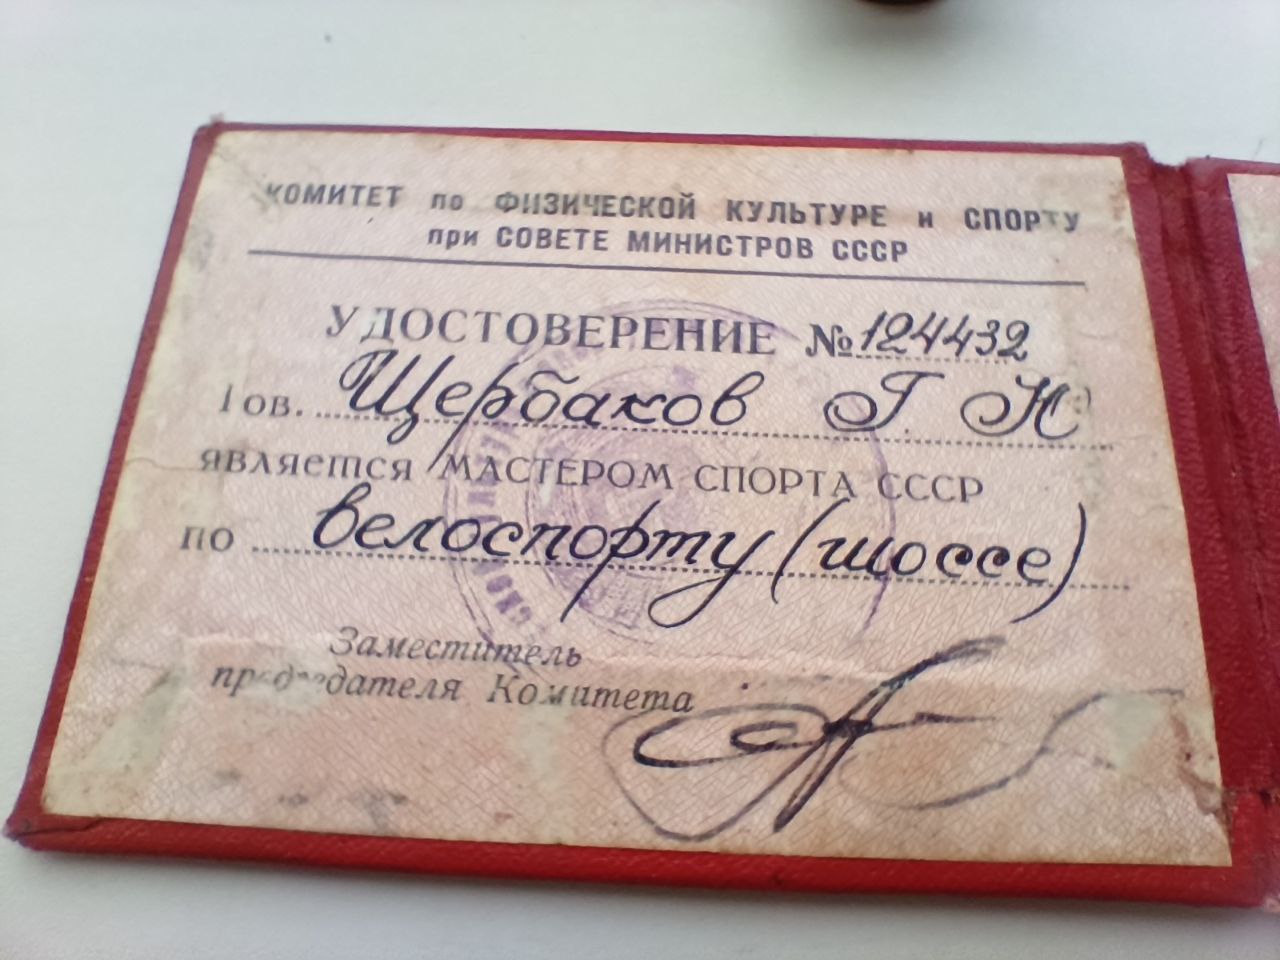 КОМИТЕТ по ФИЗИЧЕСКОЙ КУЛЬТУРЕ и СПОРТУ
при СОВЕТЕ МИНИСТРОВ СССР
УДОСТОВЕРЕНИЕ №124432
Тов. Щербаков Г Н
является МАСТЕРОМ СПОРТА СССР
по велоспорту (шоссе)
Заместитель
председателя Комитета